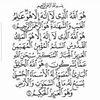 هو الله الذي لا إله إلا هو عالم
الغيب والشهادة هو الرحمن الرحيم
هو الله الذي لا إله إلا هو الملك
القدوس السلام المؤمن المهيمن
العزيز الجبار المتكبر
سبحان الله عما يشركون
هو الله الخالق البارئ المصور
له الأسماء الحسنى يسبح له
ما في السماوات والأرض
وهو العزيز الحكيم